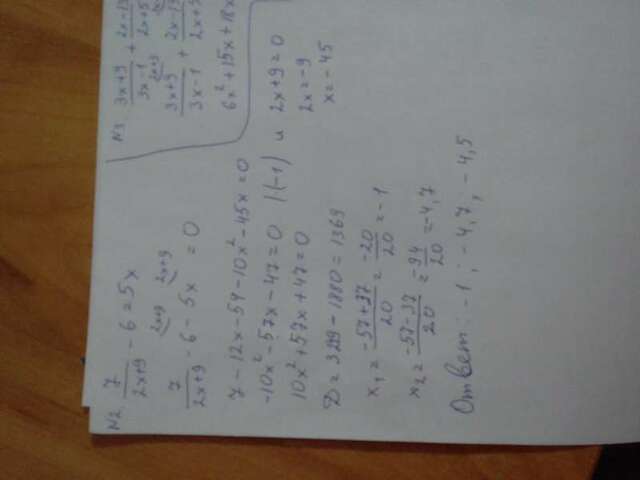 N2. 7/(2x+9) - 6 = 5x
7/(2x+9) - 6 - 5x = 0
2x+9 2x+9
7 - 12x - 54 - 10x² - 45x = 0
-10x² - 57x - 47 = 0 |·(-1) и 2x+9=0
10x² + 57x + 47 = 0 2x=-9
D = 3249 - 1880 = 1369 x=-45
x₁ = (-57+37)/20 = -20/20 = -1
x₂ = (-57-37)/20 = -94/20 = -4,7
Ответ: -1; -4,7; -4,5
N3
(3x+9)/(3x-1) + (2x-13)/(2x+5
(3x+9)/(3x-1) + (2x-13)/(2x+5
6x² + 15x + 18x